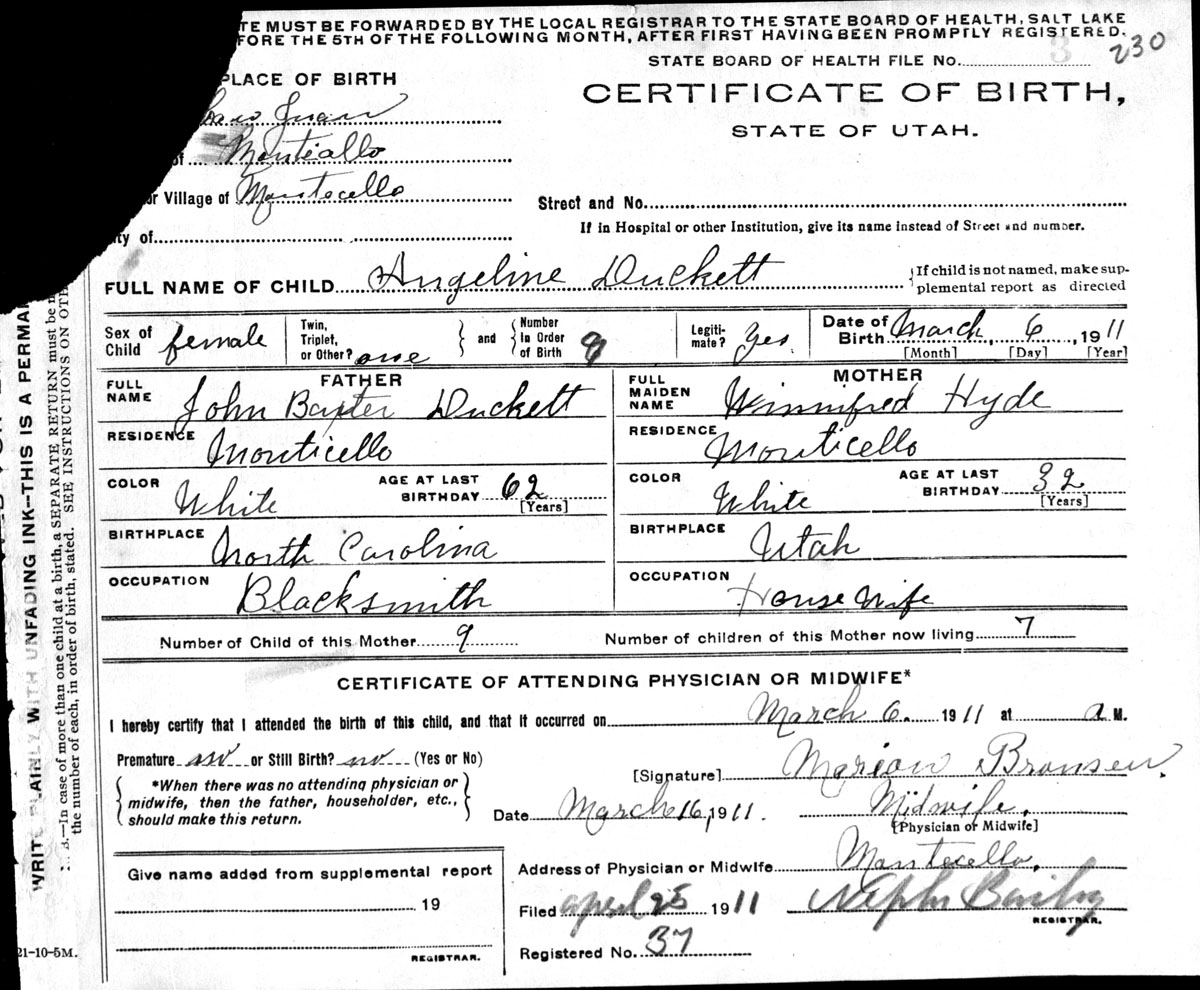 TE MUST BE FORWARDED BY THE LOCAL REGISTRAR TO THE STATE BOARD OF HEALTH, SALT LAKE
FORE THE 5TH OF THE FOLLOWING MONTH, AFTER FIRST HAVING BEEN PROMPTLY REGISTERED.
STATE BOARD OF HEALTH FILE No. 3 230
PLACE OF BIRTH
CERTIFICATE OF BIRTH,
STATE OF UTAH.
Juan
of Monticallo
or Village of Montecello
Street and No.
ity of
If in Hospital or other Institution, give its name instead of Street and number.
FULL NAME OF CHILD Angeline Duckett
If child is not named, make sup-
plemental report as directed
Sex of Child female
Twin, Triplet, or Other? one
and
Number in Order of Birth 9
Legiti-mate? Yes
Date of Birth March 6, 1911
[Month] [Day] [Year]
FATHER
FULL NAME John Baxter Duckett
RESIDENCE Monticello
COLOR White
AGE AT LAST BIRTHDAY 62
[Years]
BIRTHPLACE North Carolina
OCCUPATION Blacksmith
MOTHER
FULL MAIDEN NAME Winnifred Hyde
RESIDENCE Monticello
COLOR White
AGE AT LAST BIRTHDAY 32
[Years]
BIRTHPLACE Utah
OCCUPATION House Wife
Number of Child of this Mother 9
Number of children of this Mother now living 7
CERTIFICATE OF ATTENDING PHYSICIAN OR MIDWIFE*
I hereby certify that I attended the birth of this child, and that it occurred on March 6. 1911 at a M.
Premature no or Still Birth? no (Yes or No)
*When there was no attending physician or
midwife, then the father, householder, etc.,
should make this return.
[Signature] Marion Bronsen.
Date March 16, 1911.
Midwife.
[Physician or Midwife]
Give name added from supplemental report
19
REGISTRAR.
Address of Physician or Midwife Montecello.
Filed april 25 1911
Nephi Baily
REGISTRAR.
Registered No. 37
21-10-5M.
WRITE PLAINLY WITH UNFADING INK—THIS IS A PERMA
N. B.—In case of more than one child at a birth, a SEPARATE RETURN must be m
the number of each, in order of birth, stated. SEE INSTRUCTIONS ON OTH